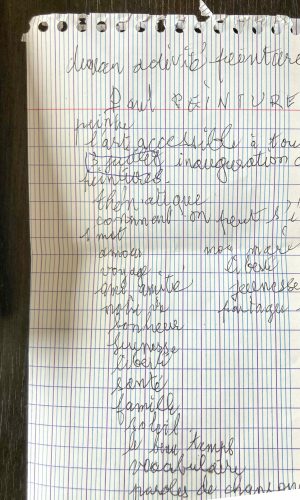 activité peinture
Paul PEINTURE
peintre
l'art accessible à tou
13 juillet inauguration
peintures
thématique
comment on peut s'
mot
amour mon
voyage liberté
amitié jeunesse
partager
bonheur
jeunesse
liberté
santé
famille
soleil
le beau temps
vocabulaire
paroles de chanson